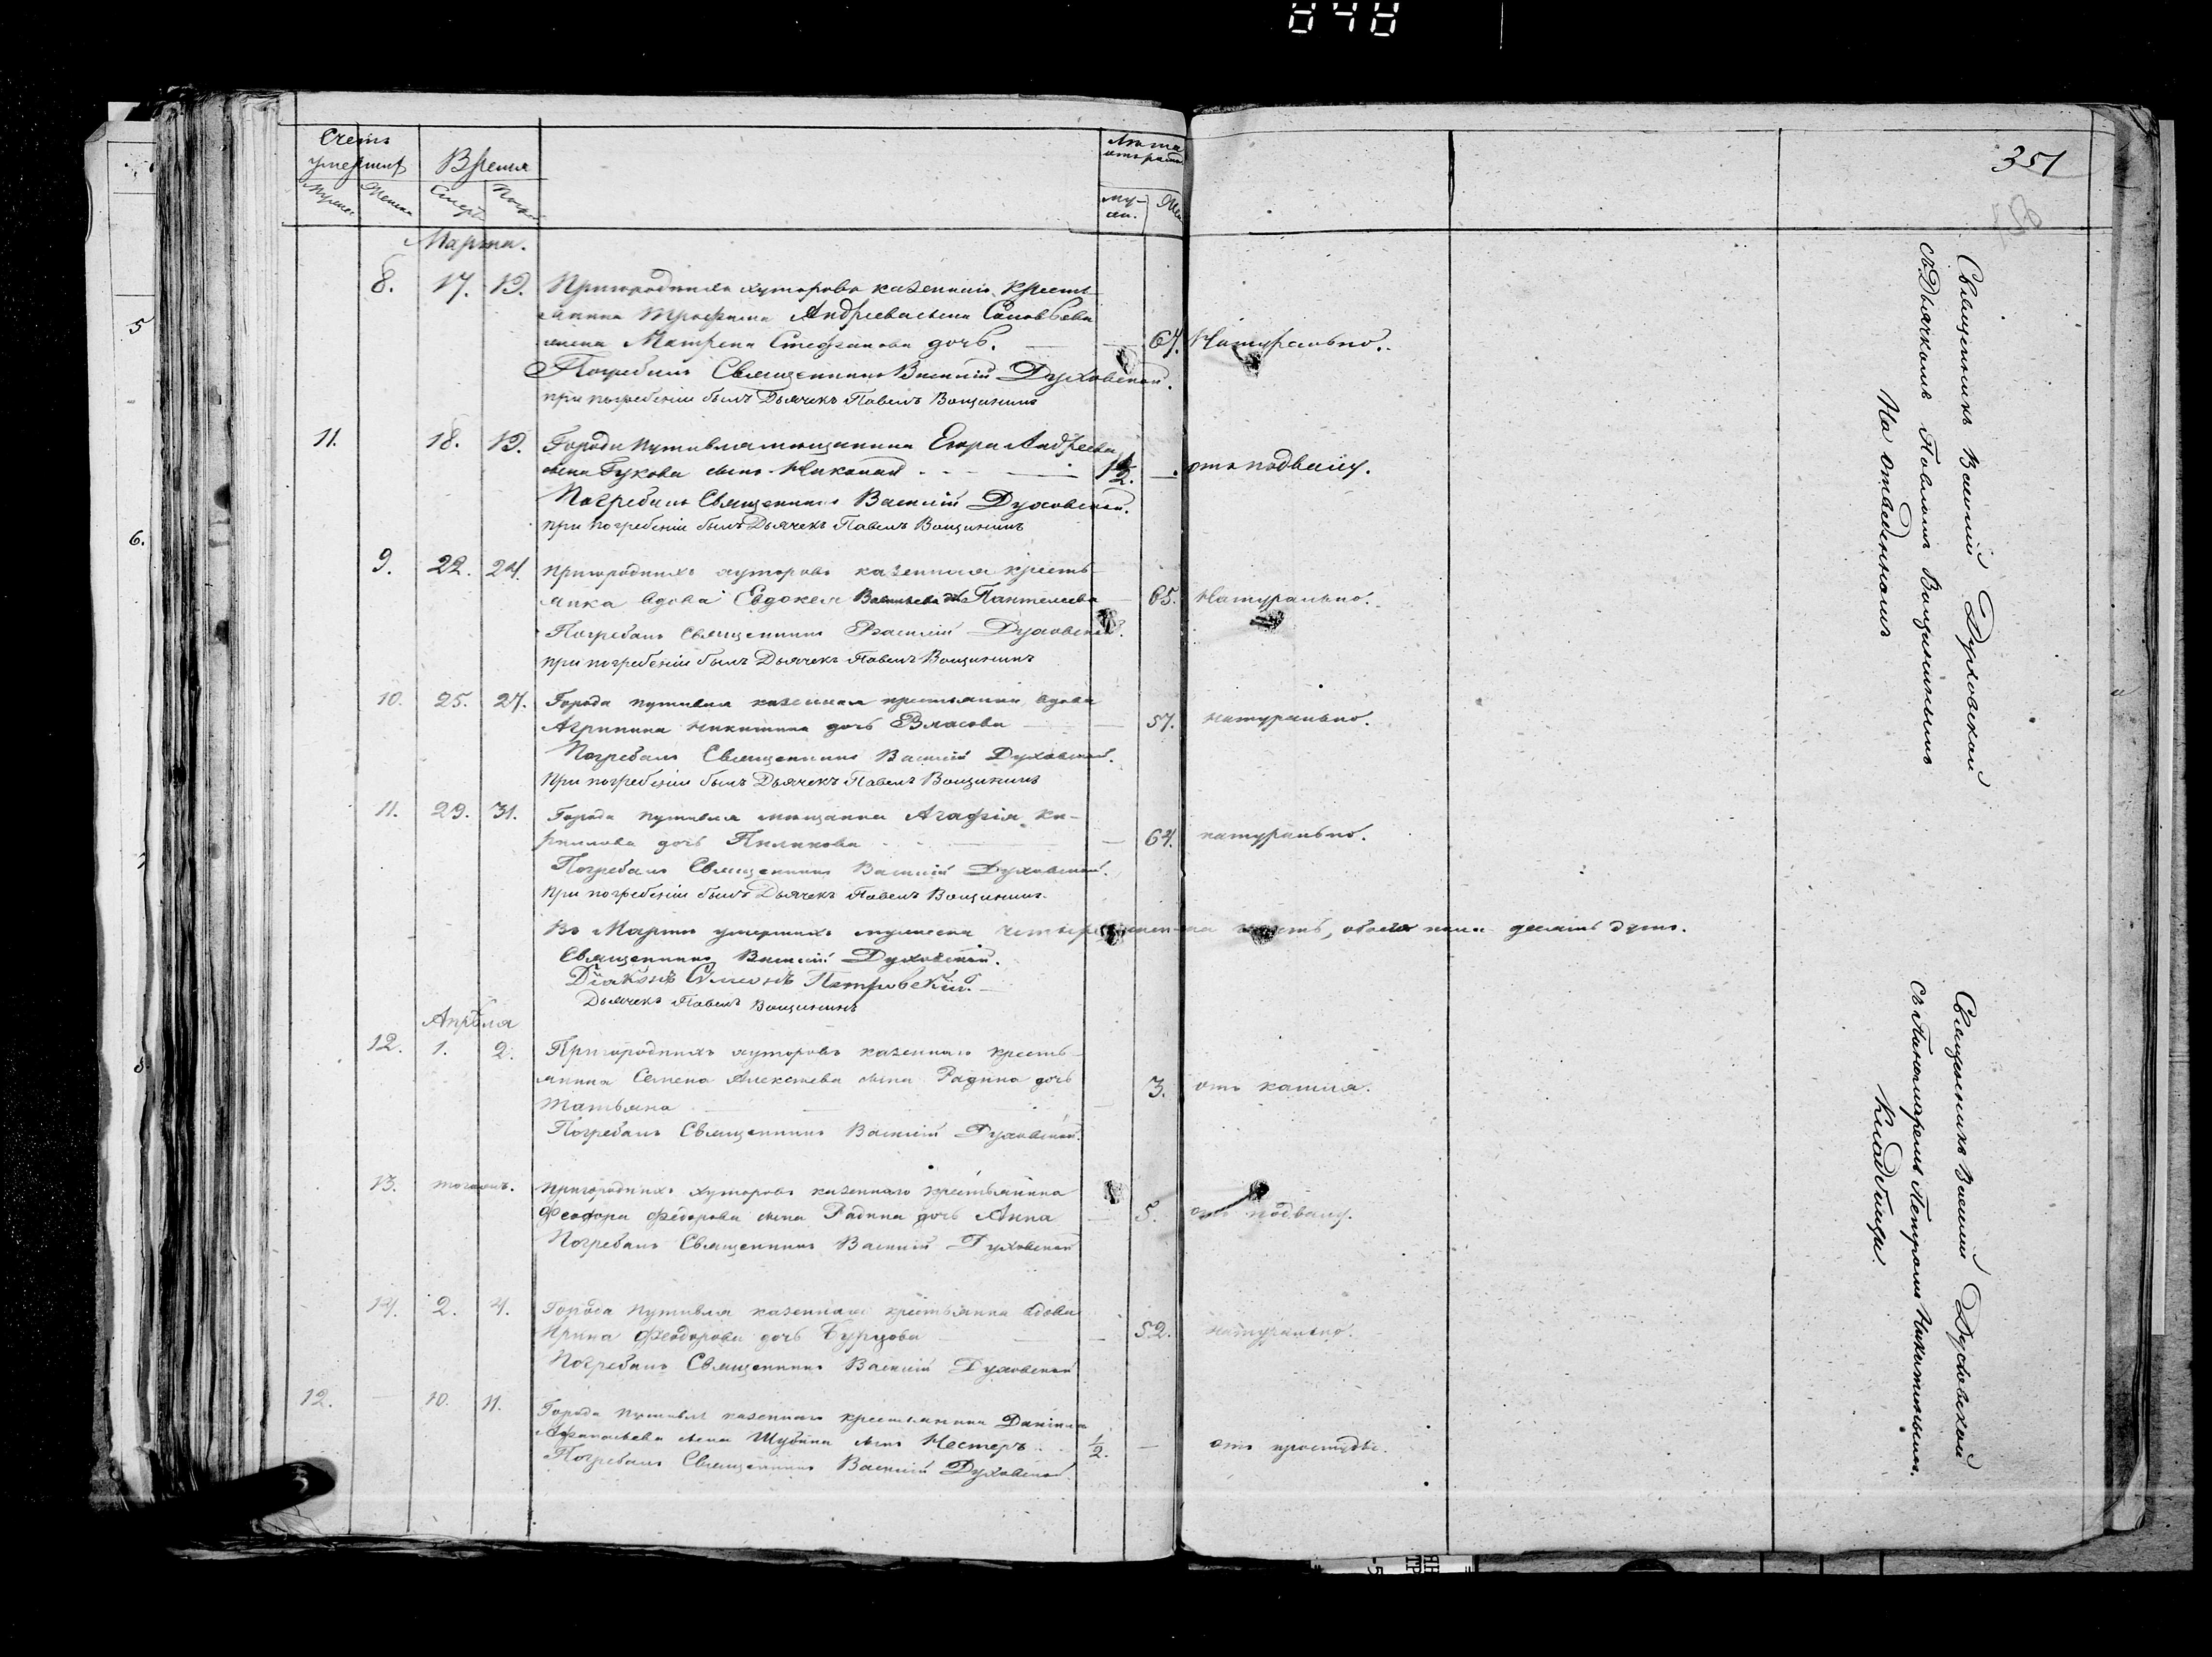 848
351
Счетъ умершихъ
Время
Лѣта отъ рожд.
Мужеска Женска Смерт Погреб
му-
Марта.
8. 17. 19. Пригородныхъ хуторовъ казеннаго кресть-
янина Трофима Андреева сына Соловьева
жена Матрена Стефанова дочь. — 67. Натурально.
Погребалъ Священникъ Василій Духовской.
при погребеніи былъ Дьячекъ Павелъ Вощининъ
11. 18. 19. Города Путивля мещанина Егора Андреева
сына Гукова сынъ Николай 1/2. — отъ подвалу.
Погребалъ Священникъ Василій Духовской.
при погребеніи былъ Дьячекъ Павелъ Вощининъ
9. 22. 24. Пригородныхъ хуторовъ казенная кресть-
янка вдова Евдокея Васильева Пантелеева — 65. Натурально.
Погребалъ Священникъ Василій Духовской.
при погребеніи былъ Дьячекъ Павелъ Вощининъ
10. 25. 27. Города Путивля казенная крестьянка вдова
Агрипина Никитина дочь Власова — 57. натурально.
Погребалъ Священникъ Василій Духовской.
При погребеніи былъ Дьячекъ Павелъ Вощининъ
11. 29. 31. Города Путивля мещанка Агафія Ки-
рилова дочь — 64. натурально.
Погребалъ Священникъ Василій Духовской.
При погребеніи былъ Дьячекъ Павелъ Вощининъ.
Въ Мартѣ умершихъ мужеска четыре женска шесть, обоего пола десять душъ.
Священникъ Василій Духовской.
Діаконъ Симеонъ Петровскій.
Дьячекъ Павелъ Вощининъ
Апрѣля
12. 1. 2. Пригородныхъ хуторовъ казеннаго кресть-
янина Семена Алексеева сына Радина дочь
Татьяна — 3. отъ кашля.
Погребалъ Священникъ Василій Духовской.
13. тогожъ. Пригородныхъ хуторовъ казеннаго крестьянина
Феодора Федорова сына Радина дочь Анна — 5. отъ подвалу.
Погребалъ Священникъ Василій Духовской
14. 2. 4. Города Путивля казенная крестьянка вдова
Ирина Феодорова дочь Бурцова — 52. натурально.
Погребалъ Священникъ Василій Духовской
12. — 10. 11. Города Путивля казеннаго крестьянина Даніила
Афанасьева сына Шубина сынъ Нестеръ 1/2. — отъ простуды.
Погребалъ Священникъ Василій Духовской.
Священникъ Василій Духовской
съ Дьячкомъ Павломъ Вощининымъ
На отведенномъ
Священникъ Василій Духовской
съ Пономаремъ Петромъ Никитинымъ.
Кладбищи.